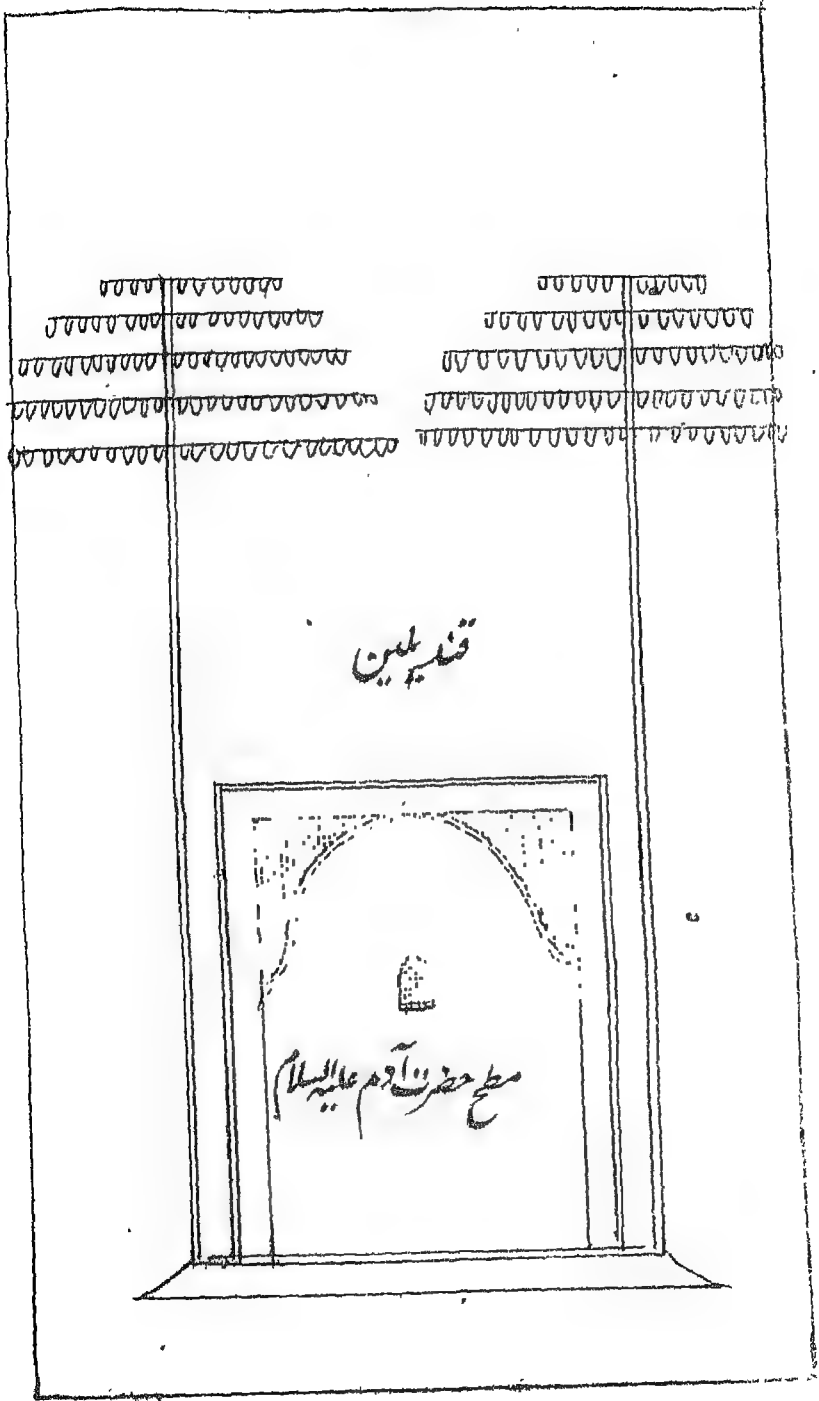 قندیلین
مطح حضرت آدم علیہ السلام